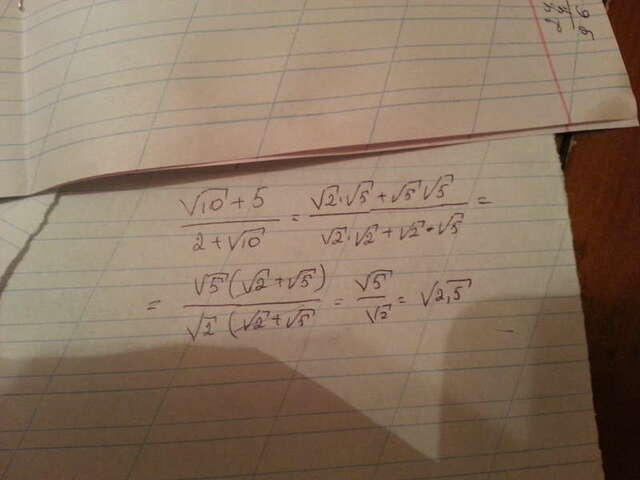 √10 + 5 / 2 + √10 = √2·√5 + √5 √5 / √2·√2 + √2·√5 =
= √5 (√2 + √5) / √2 (√2 + √5 = √5 / √2 = √2,5